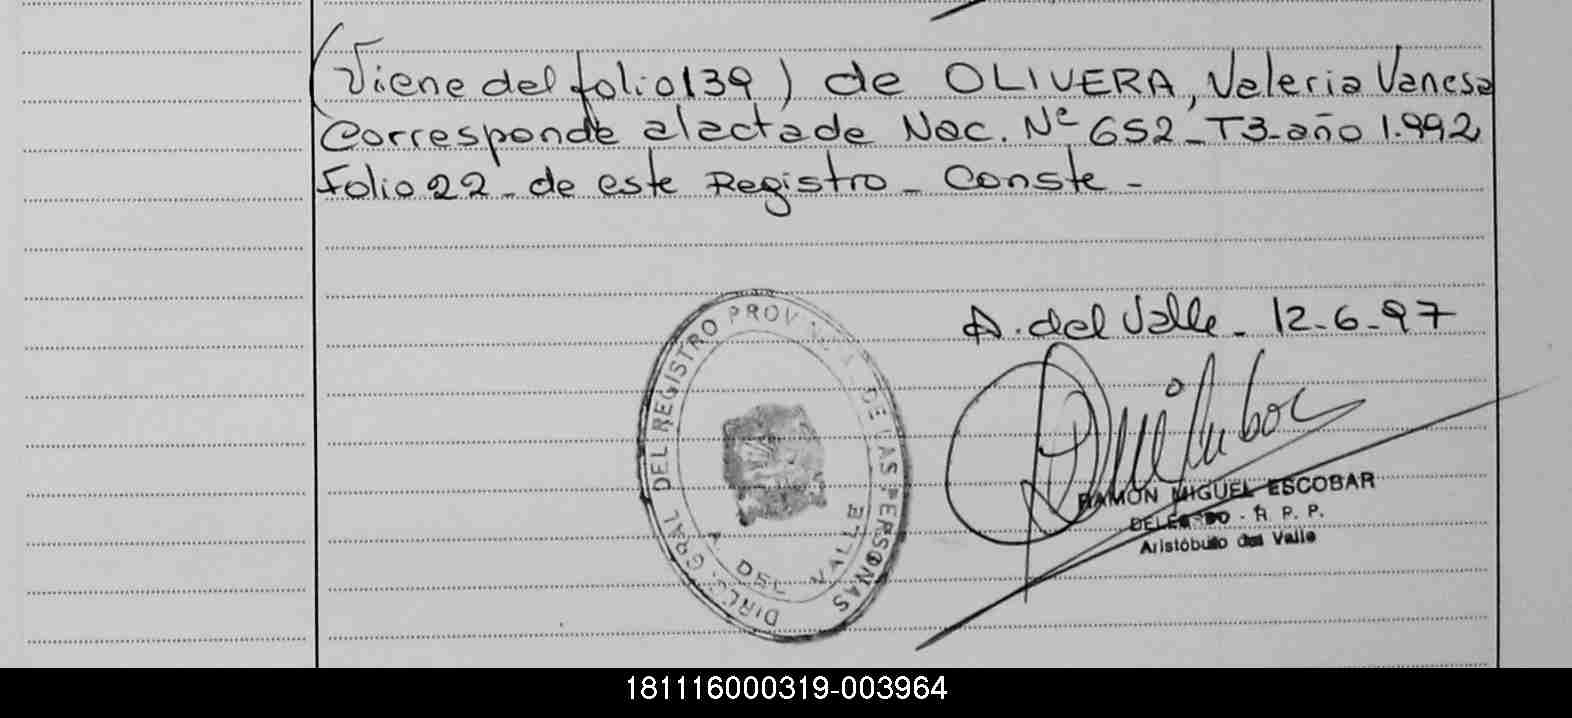 (Viene del folio 139) de OLIVERA, Valeria Vanesa
Corresponde al acta de Nac. Nº 652 - T3 - año 1.992
Folio 22 - de este Registro - Conste -
A. del Valle - 12-6-97
DIREC. GRAL DEL REGISTRO PROVINCIAL DE LAS PERSONAS
A. DEL VALLE
RAMON MIGUEL ESCOBAR
DELEGADO - R. P. P.
Aristóbulo del Valle
181116000319-003964